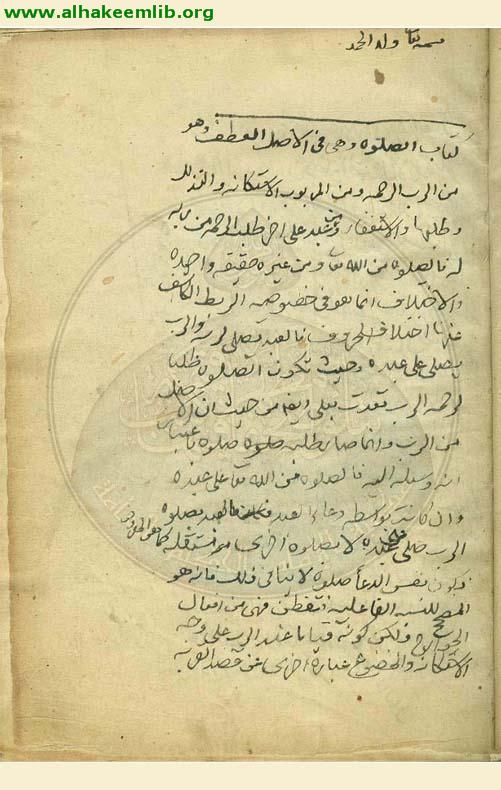 www.alhakeemlib.org
بسمه تعالى وله الحمد
كتاب الصلوة وهي في الاصل العطف وهو
من الرب الرحمة ومن المربوب الاستكانة والتذلل
وطلبها والاستغفار من عبد على اخر طلب الرحمة من ربه
له فالصلوة من الله تعا ومن غيره حقيقة واحدة
والاختلاف انما هو في خصوصية الربط الكاشف
عنها اختلاف الحروف فالعبد يصلي لربه والرب
يصلي على عبده وحيث تكون الصلوة طلبا
لرحمة الرب تعدت بعلى ايضا من حيث ان الاصل
من الرب وانما صار طلبه صلوة باعتبار
انه وسيلة اليه فالصلوة من الله تعا على عبده
وان كانت بواسطة دعاء العبد فالعبد بصلوة
الرب صلى على عبده لا بصلوة اخرى مستقلة كما هو
وكون نفس الدعاء صلوة لا ينافي ذلك فانه هو
المصحح للنسبة الفاعلية فتفطن فهي من افعال
الجوارح ولكن كونه قياما عند الرب على وجه
الاستكانة والخضوع عبارة اخرى عن قصد القربة